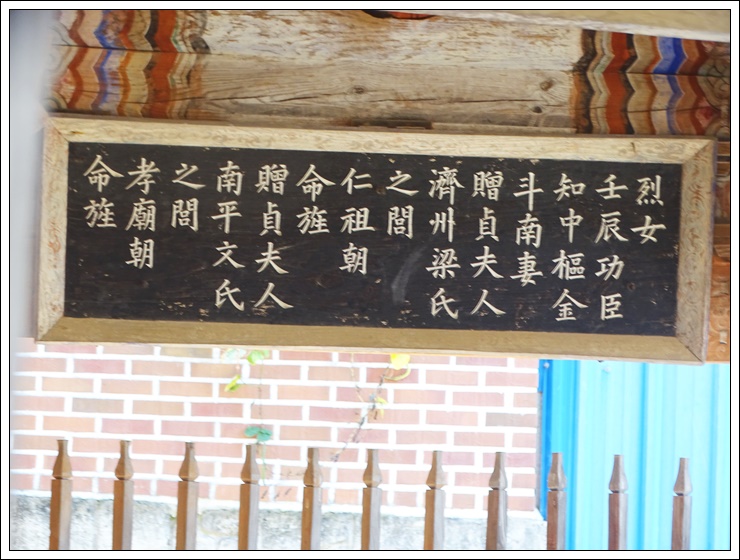 烈女
壬辰功臣
知中樞金
斗南妻
贈貞夫人
濟州梁氏
之閭
仁祖朝
命旌
贈貞夫人
南平文氏
之閭
孝廟朝
命旌